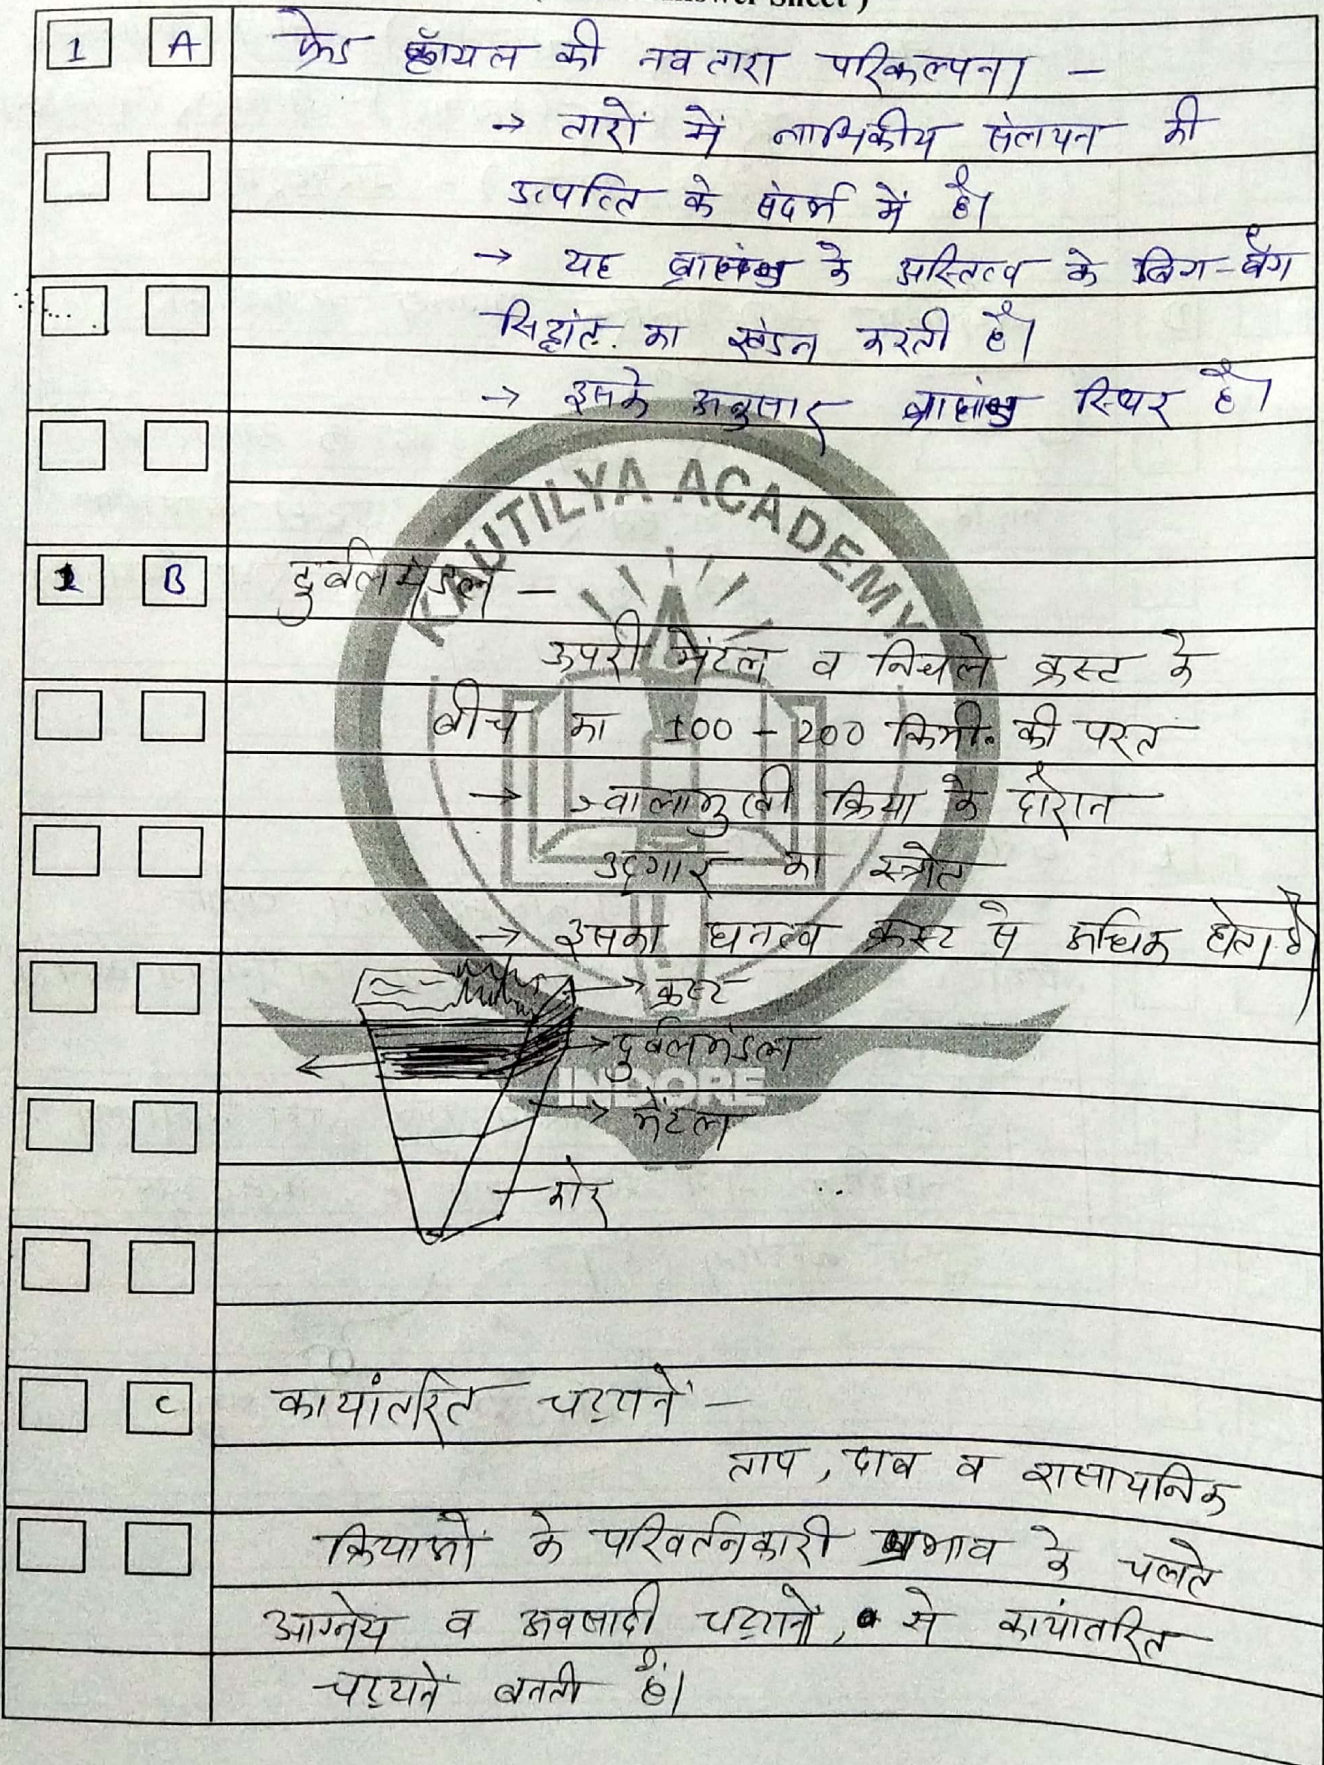 Answer Sheet )
1 A फ्रेड हॉयल की नव तारा परिकल्पना –
→ तारों में नाभिकीय संलयन की
उत्पत्ति के संदर्भ में है।
→ यह ब्रह्मांड के अस्तित्व के बिग-बैंग
सिद्धांत. का खंडन करती है।
→ इसके अनुसार ब्रह्मांड स्थिर है।
KAUTILYA ACADEMY
1 B दुर्बलमंडल –
ऊपरी मेंटल व निचले क्रस्ट के
बीच का 100 – 200 किमी. की परत
→ ज्वालामुखी क्रिया के दौरान
उद्गार का स्त्रोत
→ इसका घनत्व क्रस्ट से अधिक होता है
→ क्रस्ट
→ दुर्बलमंडल
INDORE
→ मेंटल
कोर
C कायांतरित चट्टानें –
ताप, दाब व रासायनिक
क्रियाओं के परिवर्तनकारी प्रभाव के चलते
आग्नेय व अवसादी चट्टानों, से कायांतरित
चट्टानें बनती हैं।